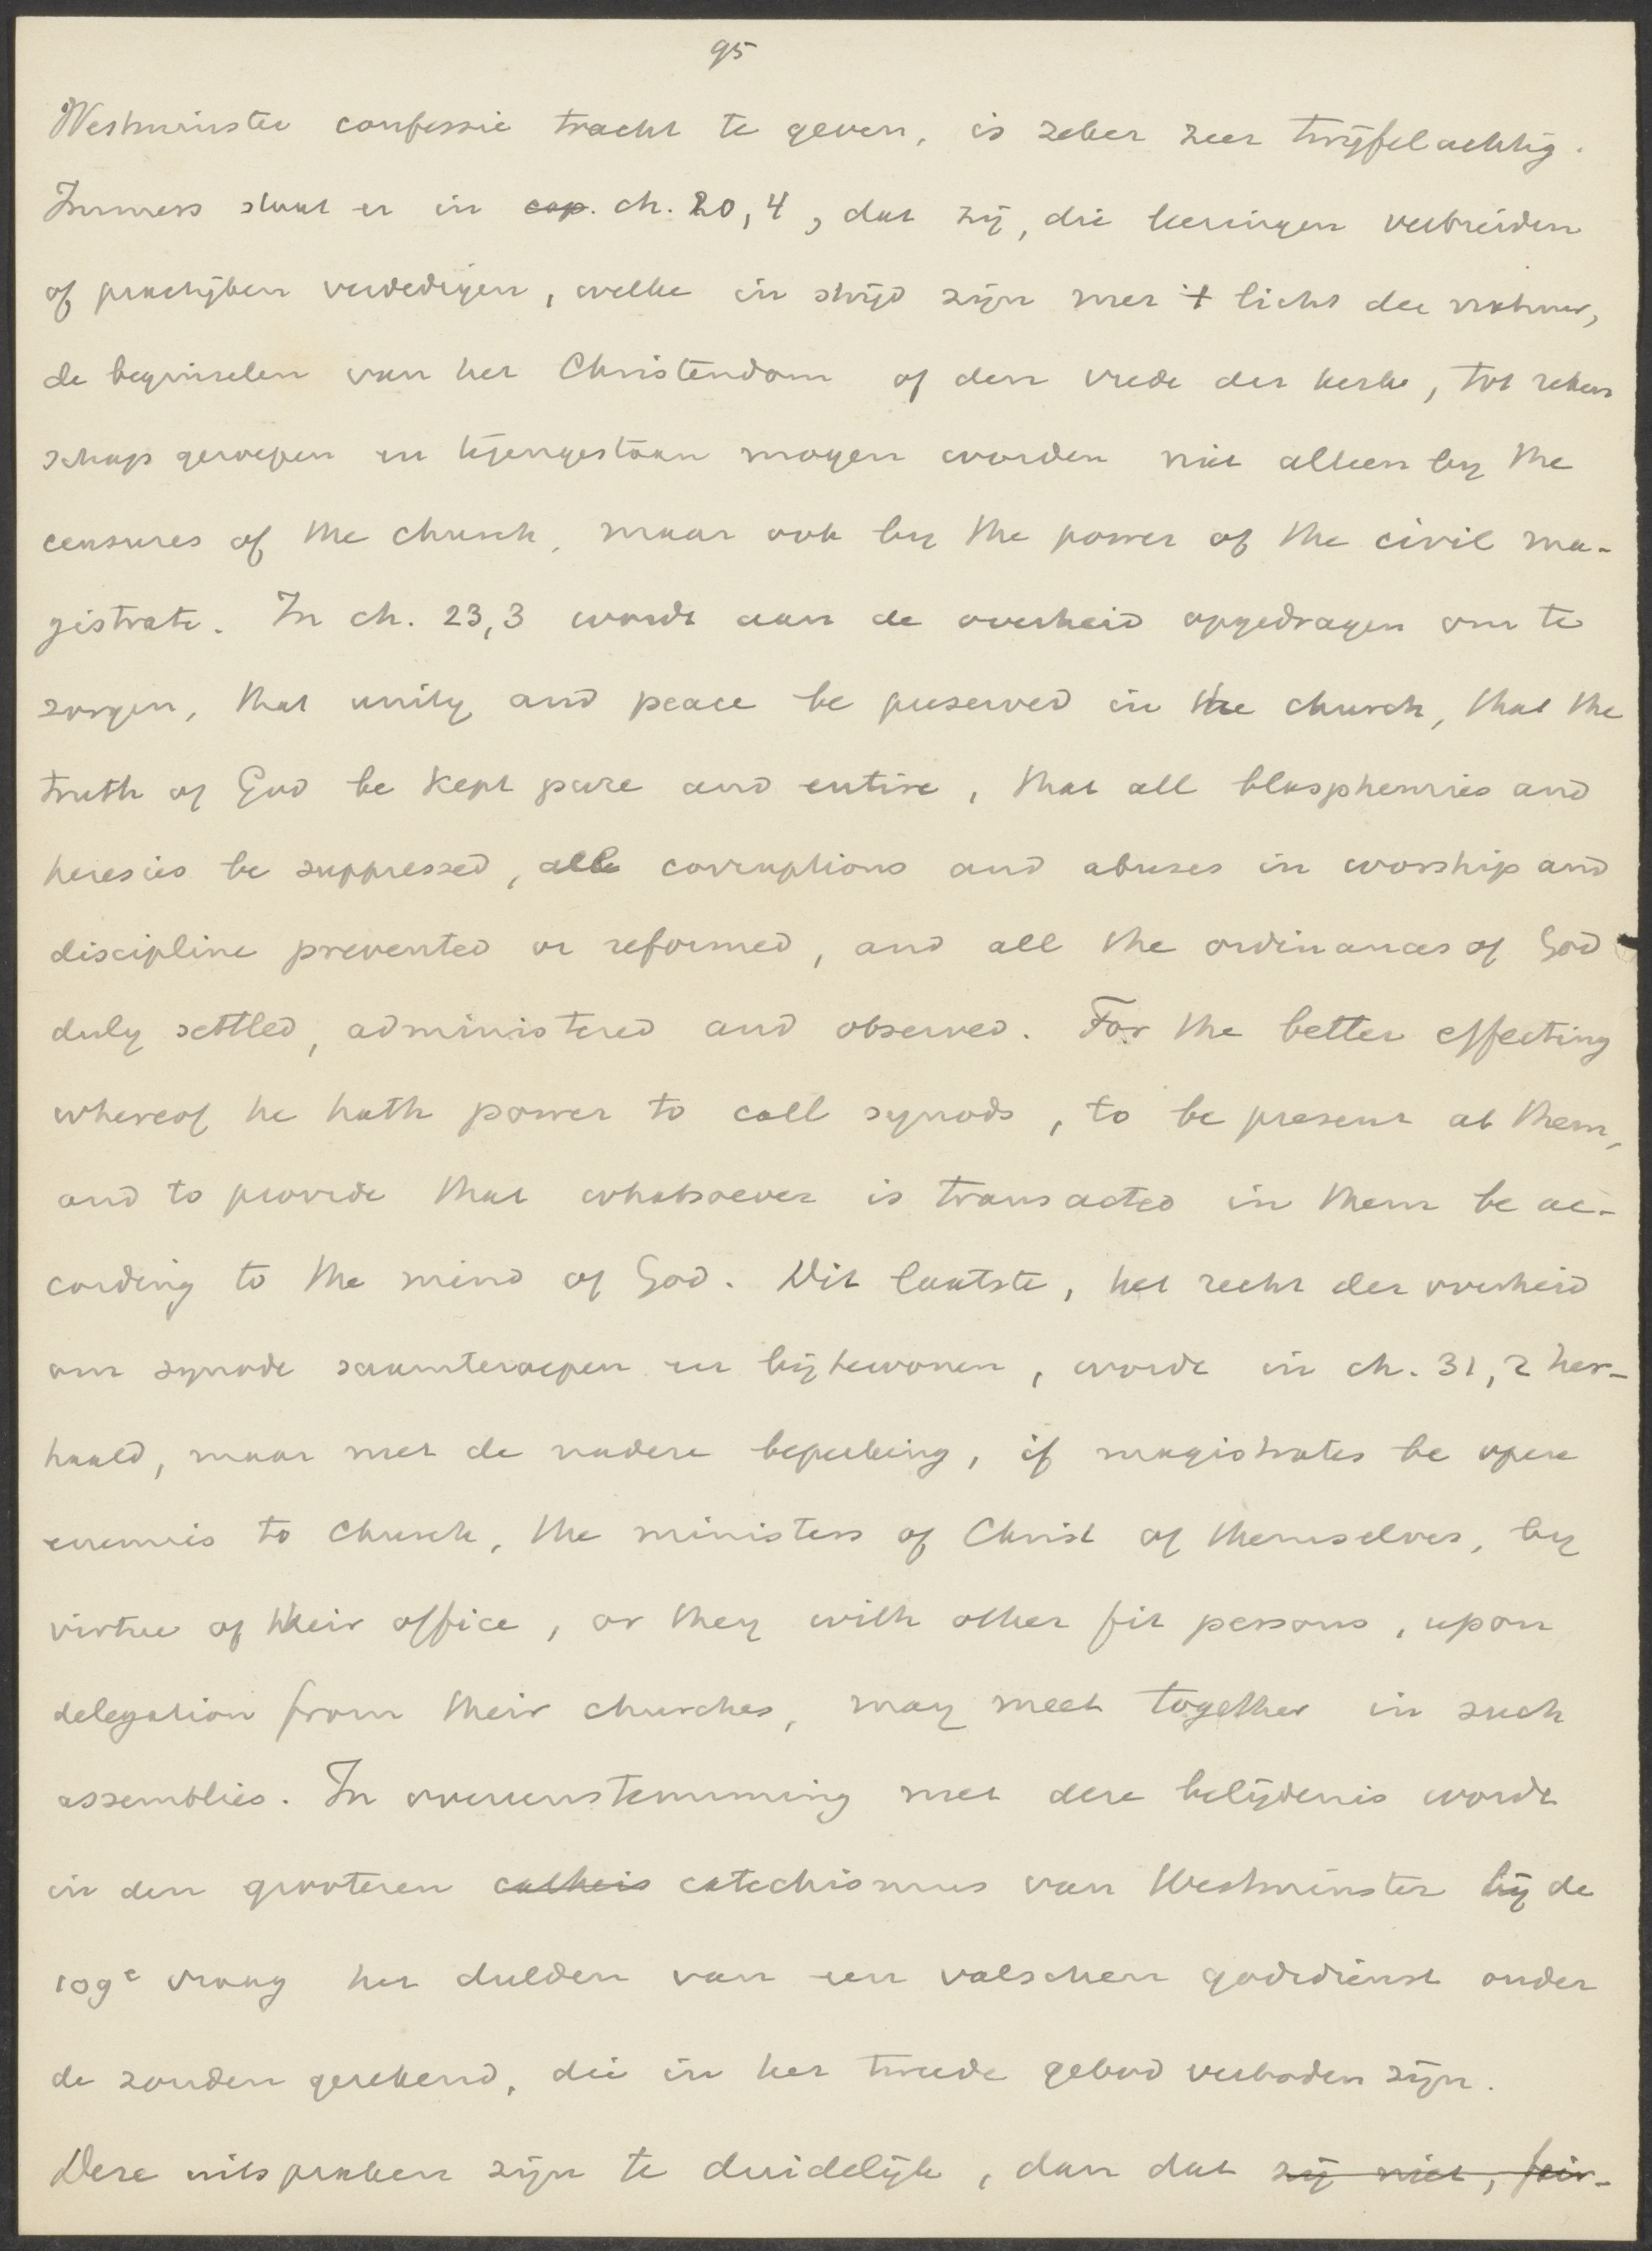 95
Westminster confessie tracht te geven, is zeker zeer twijfelachtig.
Immers staat er in cap. ch. 20,4, dat zij, die leeringen verbreiden
of praktijken verdedigen, welke in strijd zijn met 't licht der natuur,
de beginselen van het Christendom of den vrede der kerk, tot reken
schap geroepen en tegengestaan mogen worden niet alleen by the
censures of the church, maar ook by the power of the civil ma-
gistrate. In ch. 23,3 wordt aan de overheid opgedragen om te
zorgen, that unity and peace be preserved in the church, that the
truth of God be kept pure and entire, that all blasphemies and
heresies be suppressed, all corruptions and abuses in worship and
discipline prevented or reformed, and all the ordinances of God
duly settled, administered and observed. For the better effecting
whereof he hath power to call synods, to be present at them,
and to provide that whatsoever is transacted in them be ac-
cording to the mind of God. Dit laatste, het recht der overheid
om synode saamteroepen en bijtewonen, wordt in ch. 31,2 her-
haald, maar met de nadere beperking, if magistrates be open
enemies to church, the ministers of Christ of themselves, by
virtue of their office, or they with other fit persons, upon
delegation from their churches, may meet together in such
assemblies. In overeenstemming met deze belijdenis wordt
in den grooteren catheis catechismus van Westminster bij de
109e vraag het dulden van een valschen godsdienst onder
de zonden gerekend, die in het tweede gebod verboden zijn.
Deze uitspraken zijn te duidelijk, dan dat zij niet,